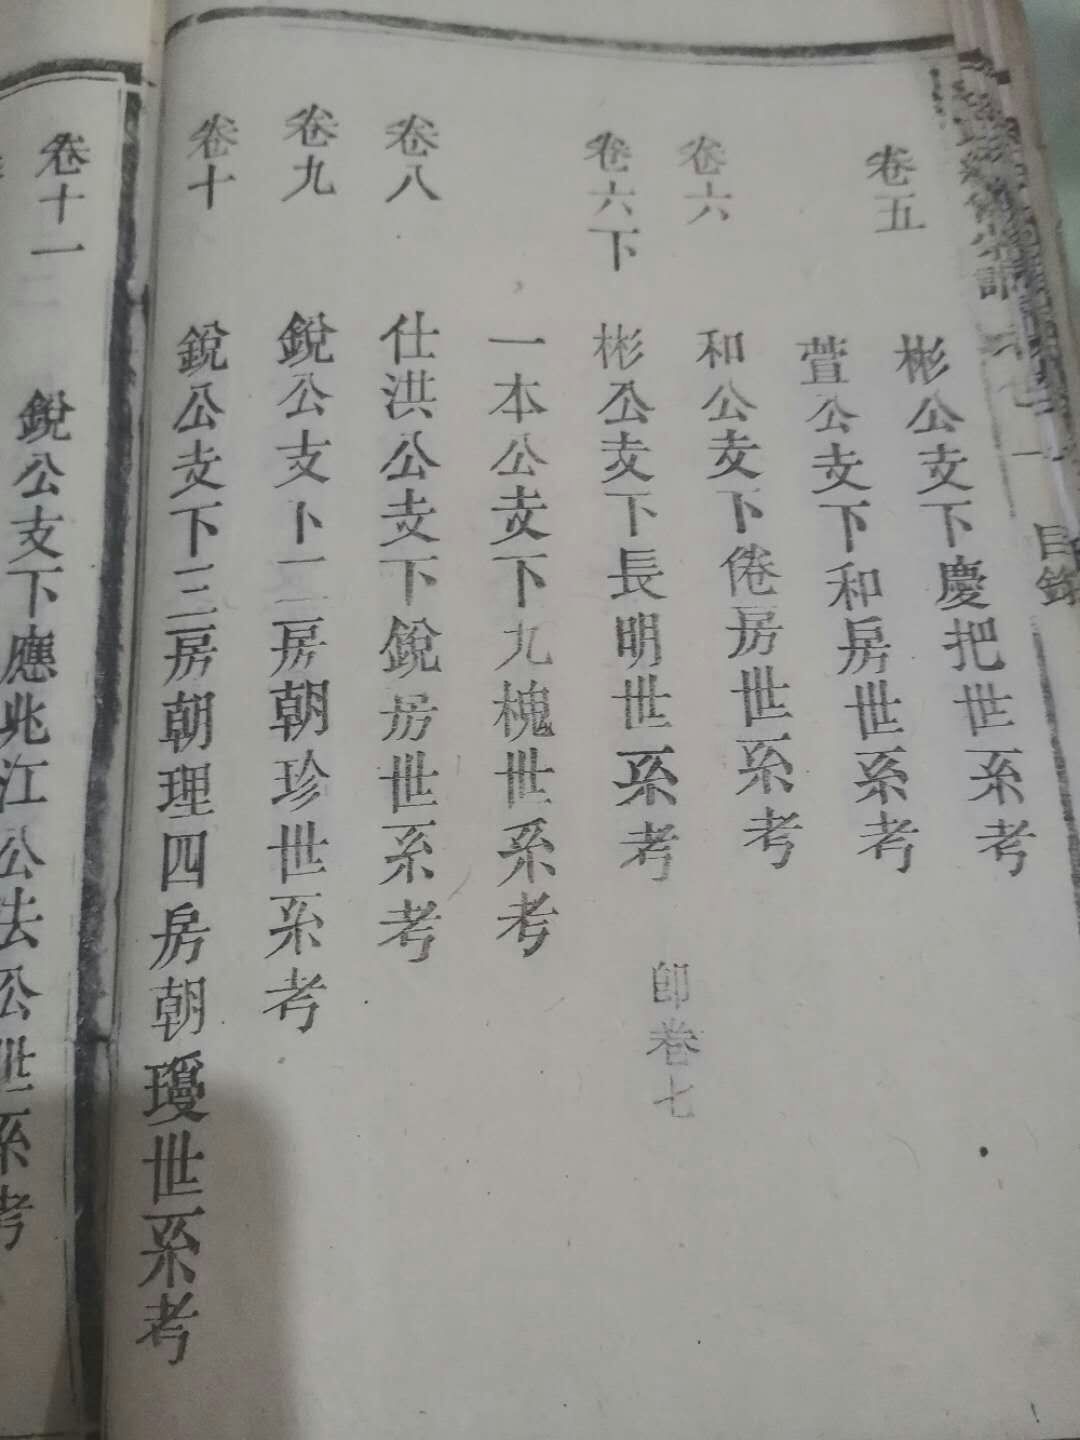 目錄
卷五 彬公支下慶把世系考
萱公支下和房世系考
卷六 和公支下倦房世系考
卷六下 彬公支下長明世系考 卽卷七
一本公支下九槐世系考
卷八 仕洪公支下銳房世系考
卷九 銳公支下二房朝珍世系考
卷十 銳公支下三房朝理四房朝璦世系考
卷十一 銳公支下應兆江公法公世系考